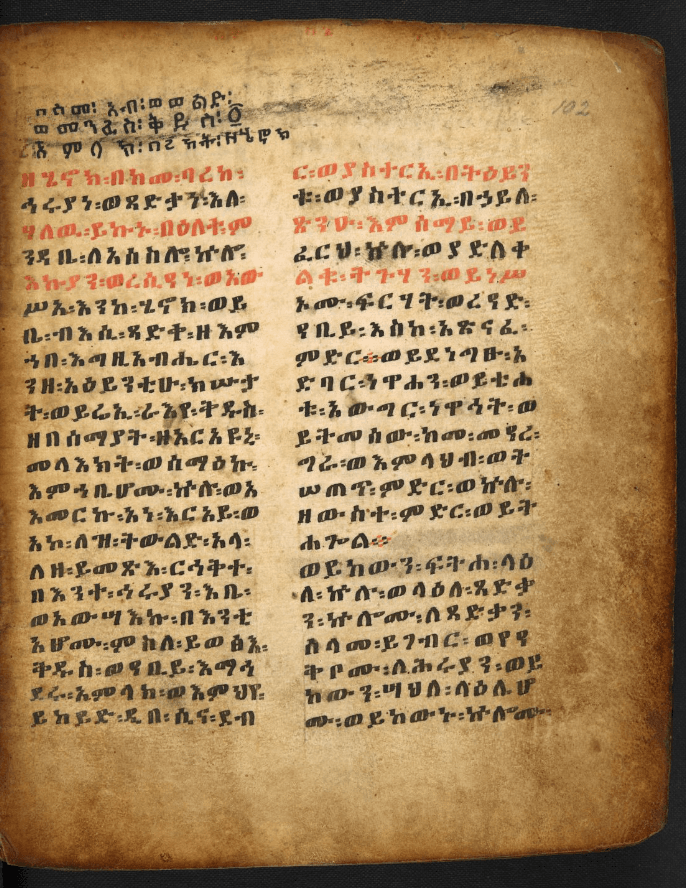 በስመ፡ አብ፡ ወወልድ፡
ወመንፈስ፡ ቅዱስ፡ ፩
አምላክ፡ በረከት፡ ዘሄኖክ
102
ዘሄኖክ፡በከመ፡ባረከ፡
ኅሩያነ፡ወጻድቃን፡እለ፡
ሃለዉ፡ይኩኑ፡በዕለተ፡ም
ንዳቤ፡ለአሰስሎ፡ኵሎ፡
እኩያን፡ወረሲዓነ፡ወአው
ሥአ፡እንከ፡ሄኖክ፡ወይ
ቤ፡ብእሲ፡ጻድቅ፡ዘእም
ኀበ፡እግዚአብሔር፡እ
ንዘ፡አዕይንቲሁ፡ክሡታ
ት፡ወይሬኢ፡ራእየ፡ቅዱስ፡
ዘበሰማያት፡ዘአርአዩኒ፡
መላእክት፡ወሰማዕኩ፡
እምኀቤሆሙ፡ኵሎ፡ወአ
እመርኩ፡አነ፡እርአይ፡ወ
አኮ፡ለዝ፡ትውልድ፡አላ፡
ለዘ፡ይመጽእ፡ርኁቅት፡
በእንተ፡ኅሩያን፡እቤ፡
ወአውሣእኩ፡በእንቲ
አሆሙ፡ምስለ፡ይወፅእ፡
ቅዱስ፡ወዓቢይ፡እማኅ
ደሩ፡አምላክ፡ወእምህየ፡
ይከይድ፡ዲበ፡ሲና፡ደብ
ር፡ወያስተርኢ፡በትዕይን
ቱ፡ወያስተርኢ፡በኃይለ፡
ጽንዑ፡እምሰማይ፡ወይ
ፈርህ፡ኵሉ፡ወያድለቀ
ልቁ፡ትጉሃን፡ወይነሥ
ኦሙ፡ፍርሃት፡ወረዓድ፡
ዓቢይ፡እስከ፡አጽናፈ፡
ምድር።ወይደነግፁ፡አ
ድባር፡ነዋኃን፡ወይቲሐ
ቱ፡አውግር፡ነዋኅት፡ወ
ይትመሰው፡ከመ፡መዓረ፡
ግራ፡ወእምላህብ፡ወት
ሠጠም፡ምድር፡ወኵሉ፡
ዘውስተ፡ምድር፡ወይት
ሐጐል።
ወይከውን፡ፍትሐ፡ላዕ
ለ፡ኵሉ፡ወላዕለ፡ጻድቃ
ን፡ኵሎሙ፡ለጻድቃን፡
ሰላመ፡ይገብር፡ወየዓ
ቅቦሙ፡ለኅሩያን፡ወይ
ከውን፡ሣህለ፡ላዕሌሆ
ሙ፡ወይከውኑ፡ኵሎሙ፡